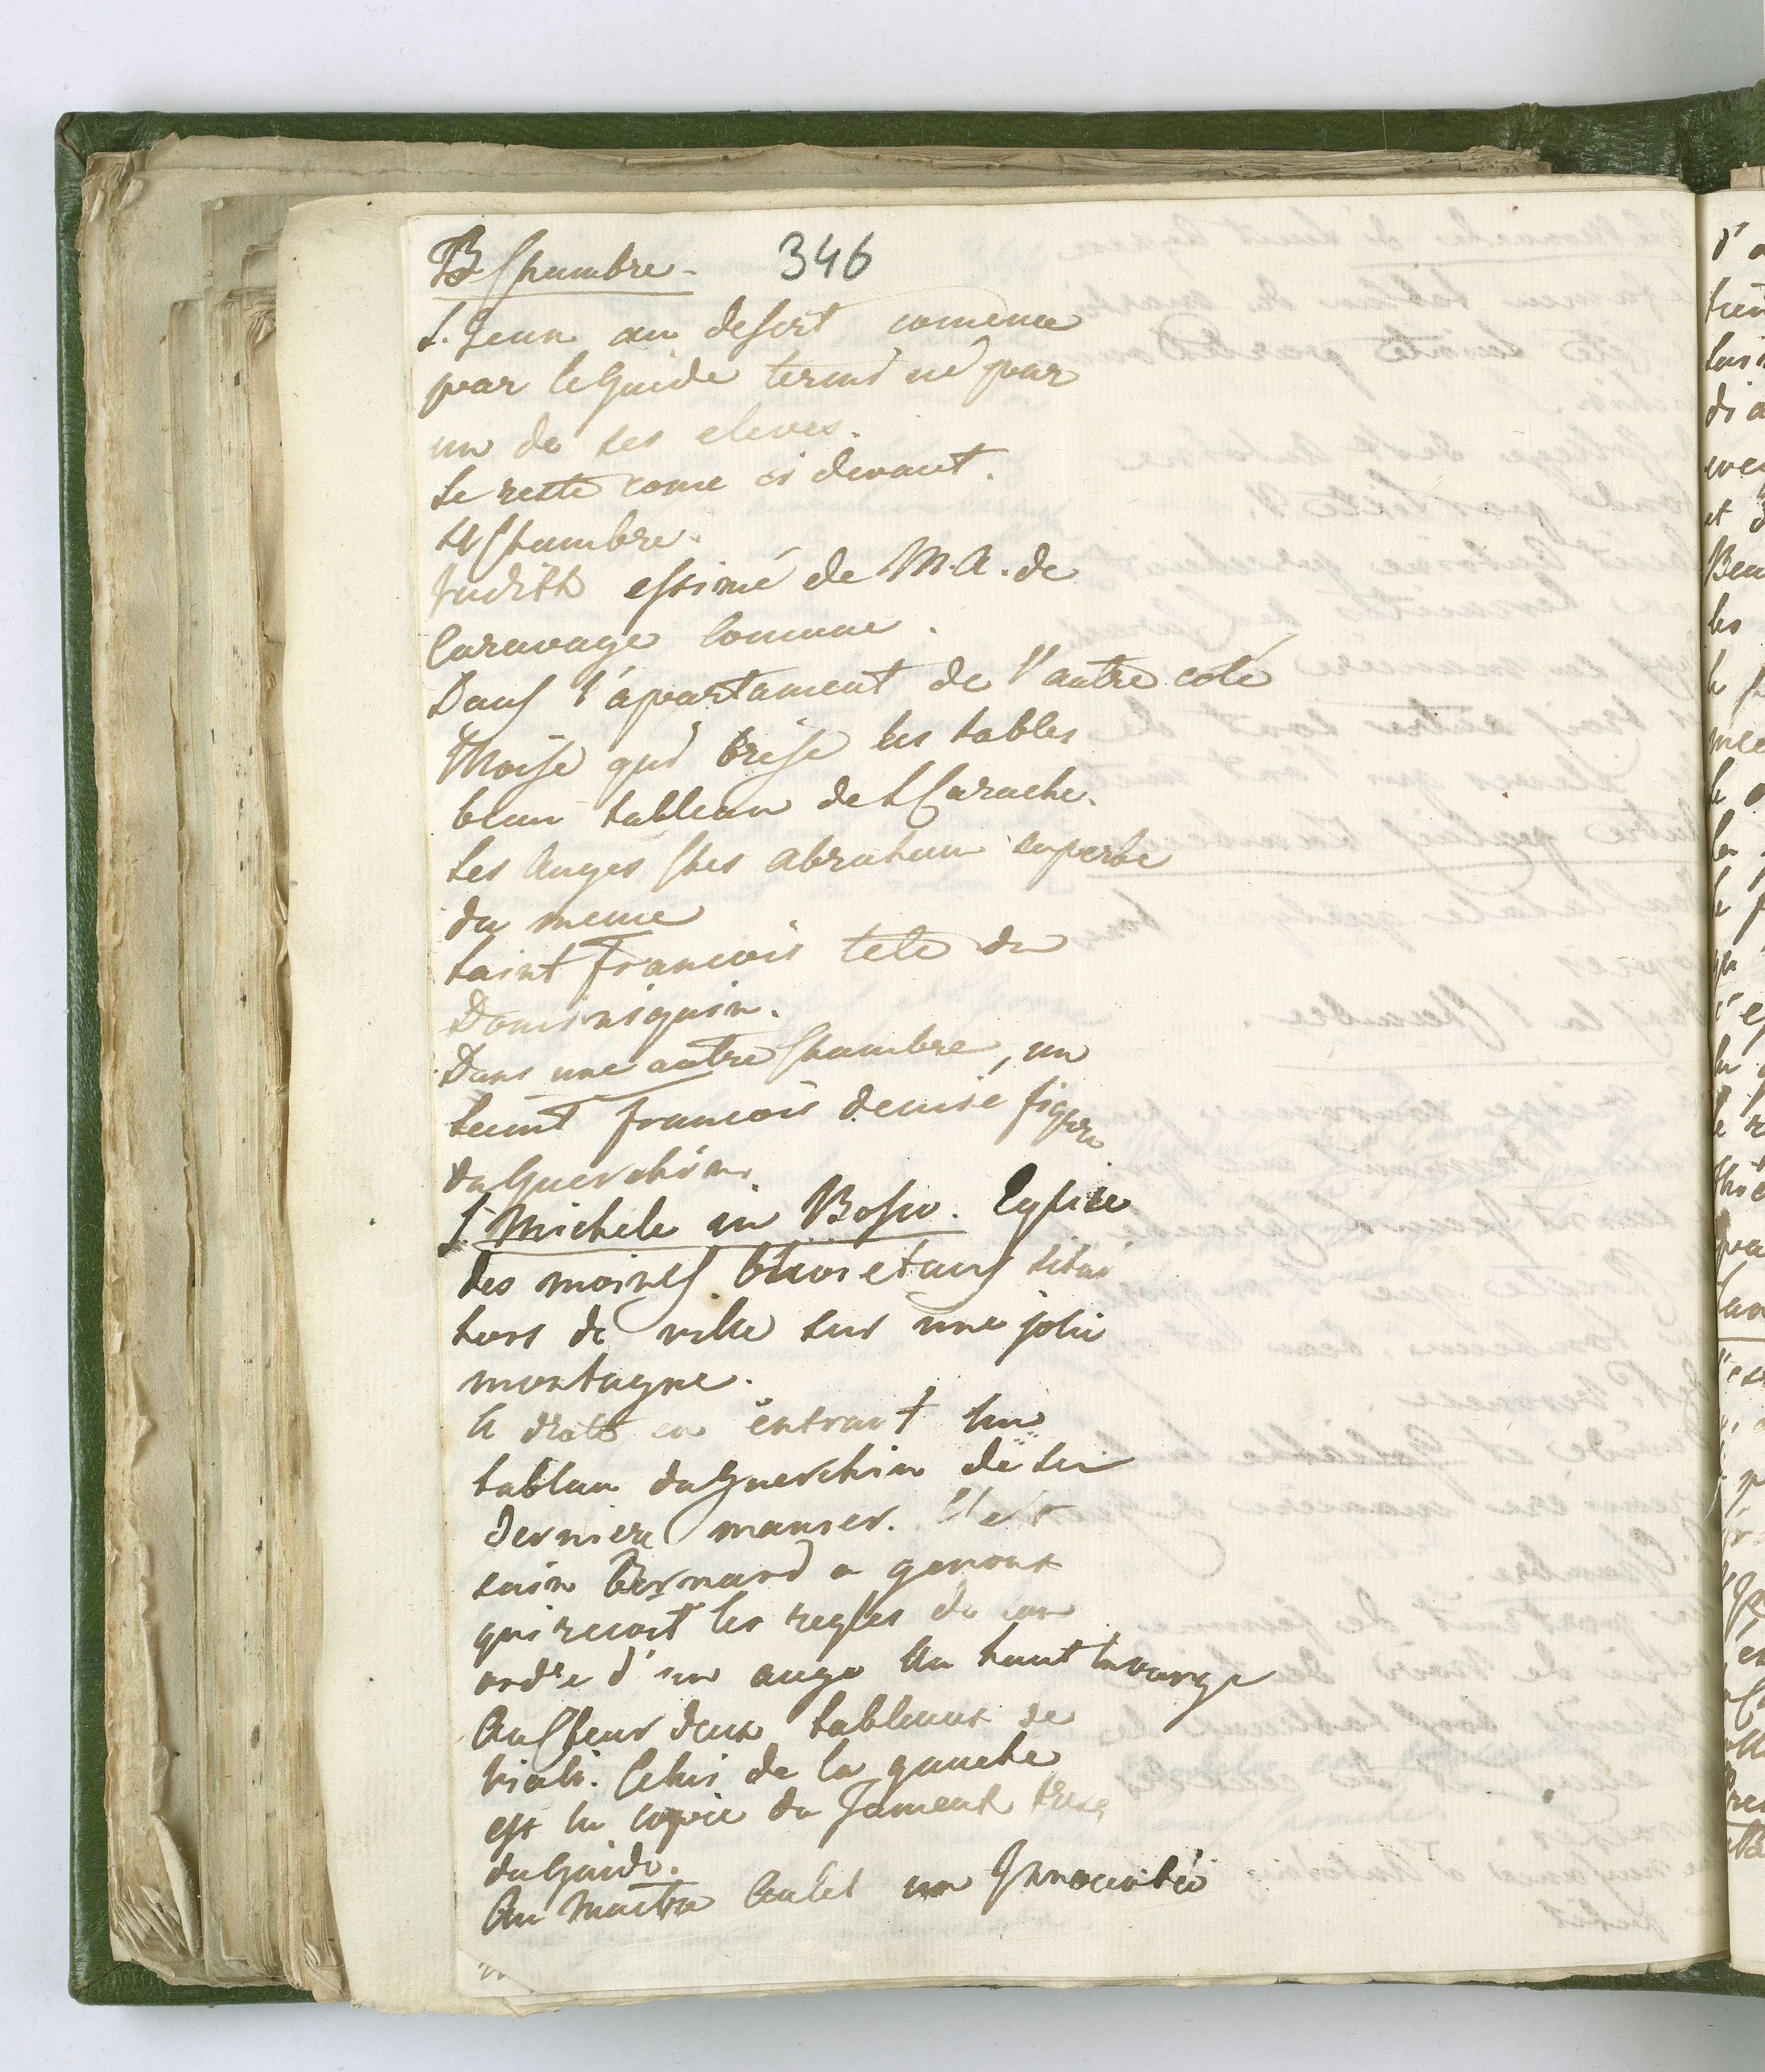 B Chambre. 346
S. Jean au desert comencé
par le Guide terminé par
un de ses eleves.
Le reste come ci devant.
4 Chambre.
Judith estimé de M. A. de
Caravage Comune.
Dans l'apartament de l'autre coté
Moise qui brise les tables
beau tableau de L Carache.
Les Anges ches Abraham superbe
du meme
Saint Francois tete du
Dominiquin.
Dans une autre Chambre, un
Saint Francois demie figure
du Guerchin.
S Michele in Bosco. Eglise
des moines Olivetans situé
hors de ville sur une jolie
montagne.
A droite en entrant un
tablau du Guerchin de sa
derniere manier. C'est
sain Bernard a genoux
qui recoit les regles de son
ordre d'un ange En haut la vierge
Au Cheur deux tableaux de
Viali. Celui de la gauche
est la copie du fameux
du Guido.
Au Maitre Autel un